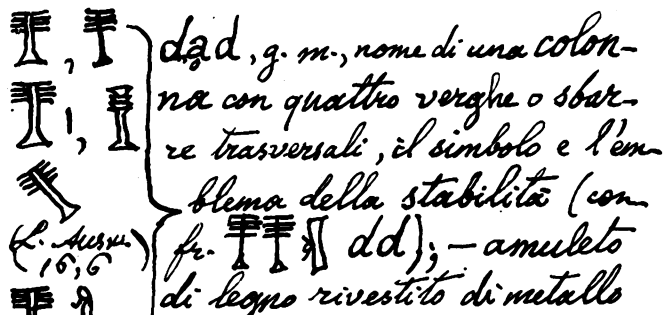 dạd, g. m., nome di una colon-
na con quattro verghe o sbar-
re trasversali, il simbolo e l'em-
blema della stabilità (con-
fr. 𓊽𓊽 dd); — amuleto
(L. 
16,6)
di legno rivestito di metallo